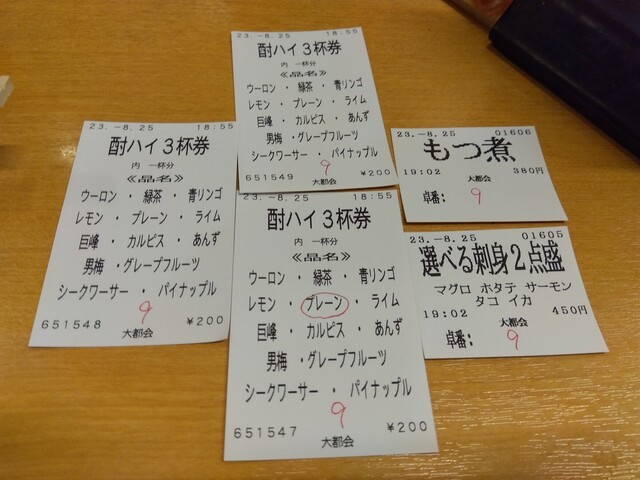 23.-8.25 18:55
酎ハイ3杯券
内 一杯分
《品名》
ウーロン ・ 緑茶 ・ 青リンゴ
レモン ・ プレーン ・ ライム
巨峰 ・ カルピス ・ あんず
男梅 ・グレープフルーツ
シークワーサー ・ パイナップル
9
651549 ¥200
大都会
23.-8.25 18:55
酎ハイ3杯券
内 一杯分
《品名》
ウーロン ・ 緑茶 ・ 青リンゴ
レモン ・ プレーン ・ ライム
巨峰 ・ カルピス ・ あんず
男梅 ・グレープフルーツ
シークワーサー ・ パイナップル
9
651548 ¥200
大都会
23.-8.25 18:55
酎ハイ3杯券
内 一杯分
《品名》
ウーロン ・ 緑茶 ・ 青リンゴ
レモン ・ プレーン ・ ライム
巨峰 ・ カルピス ・ あんず
男梅 ・グレープフルーツ
シークワーサー ・ パイナップル
9
651547 ¥200
大都会
23.-8.25 01606
もつ煮
19:02 380円
大都会
卓番: 9
23.-8.25 01605
選べる刺身2点盛
マグロ ホタテ サーモン
タコ イカ
19:02 450円
大都会
卓番: 9